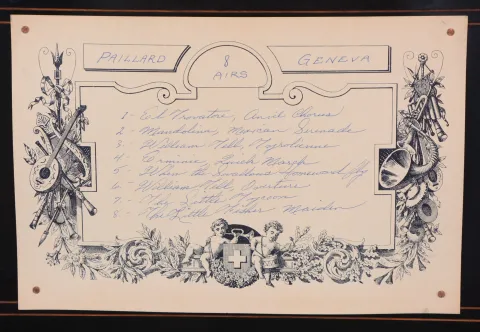 PAILLARD
8
AIRS
GENEVA
1- El Trovatore, Anvil Chorus
2- Mandolina, Mexican Serenade
3- William Tell, Tyrolienne
4- Lunch March
5- When the Swallows Homeward fly
6- William Tell, Overture
7- The Little Tycoon
8- The Little Fisher Maiden